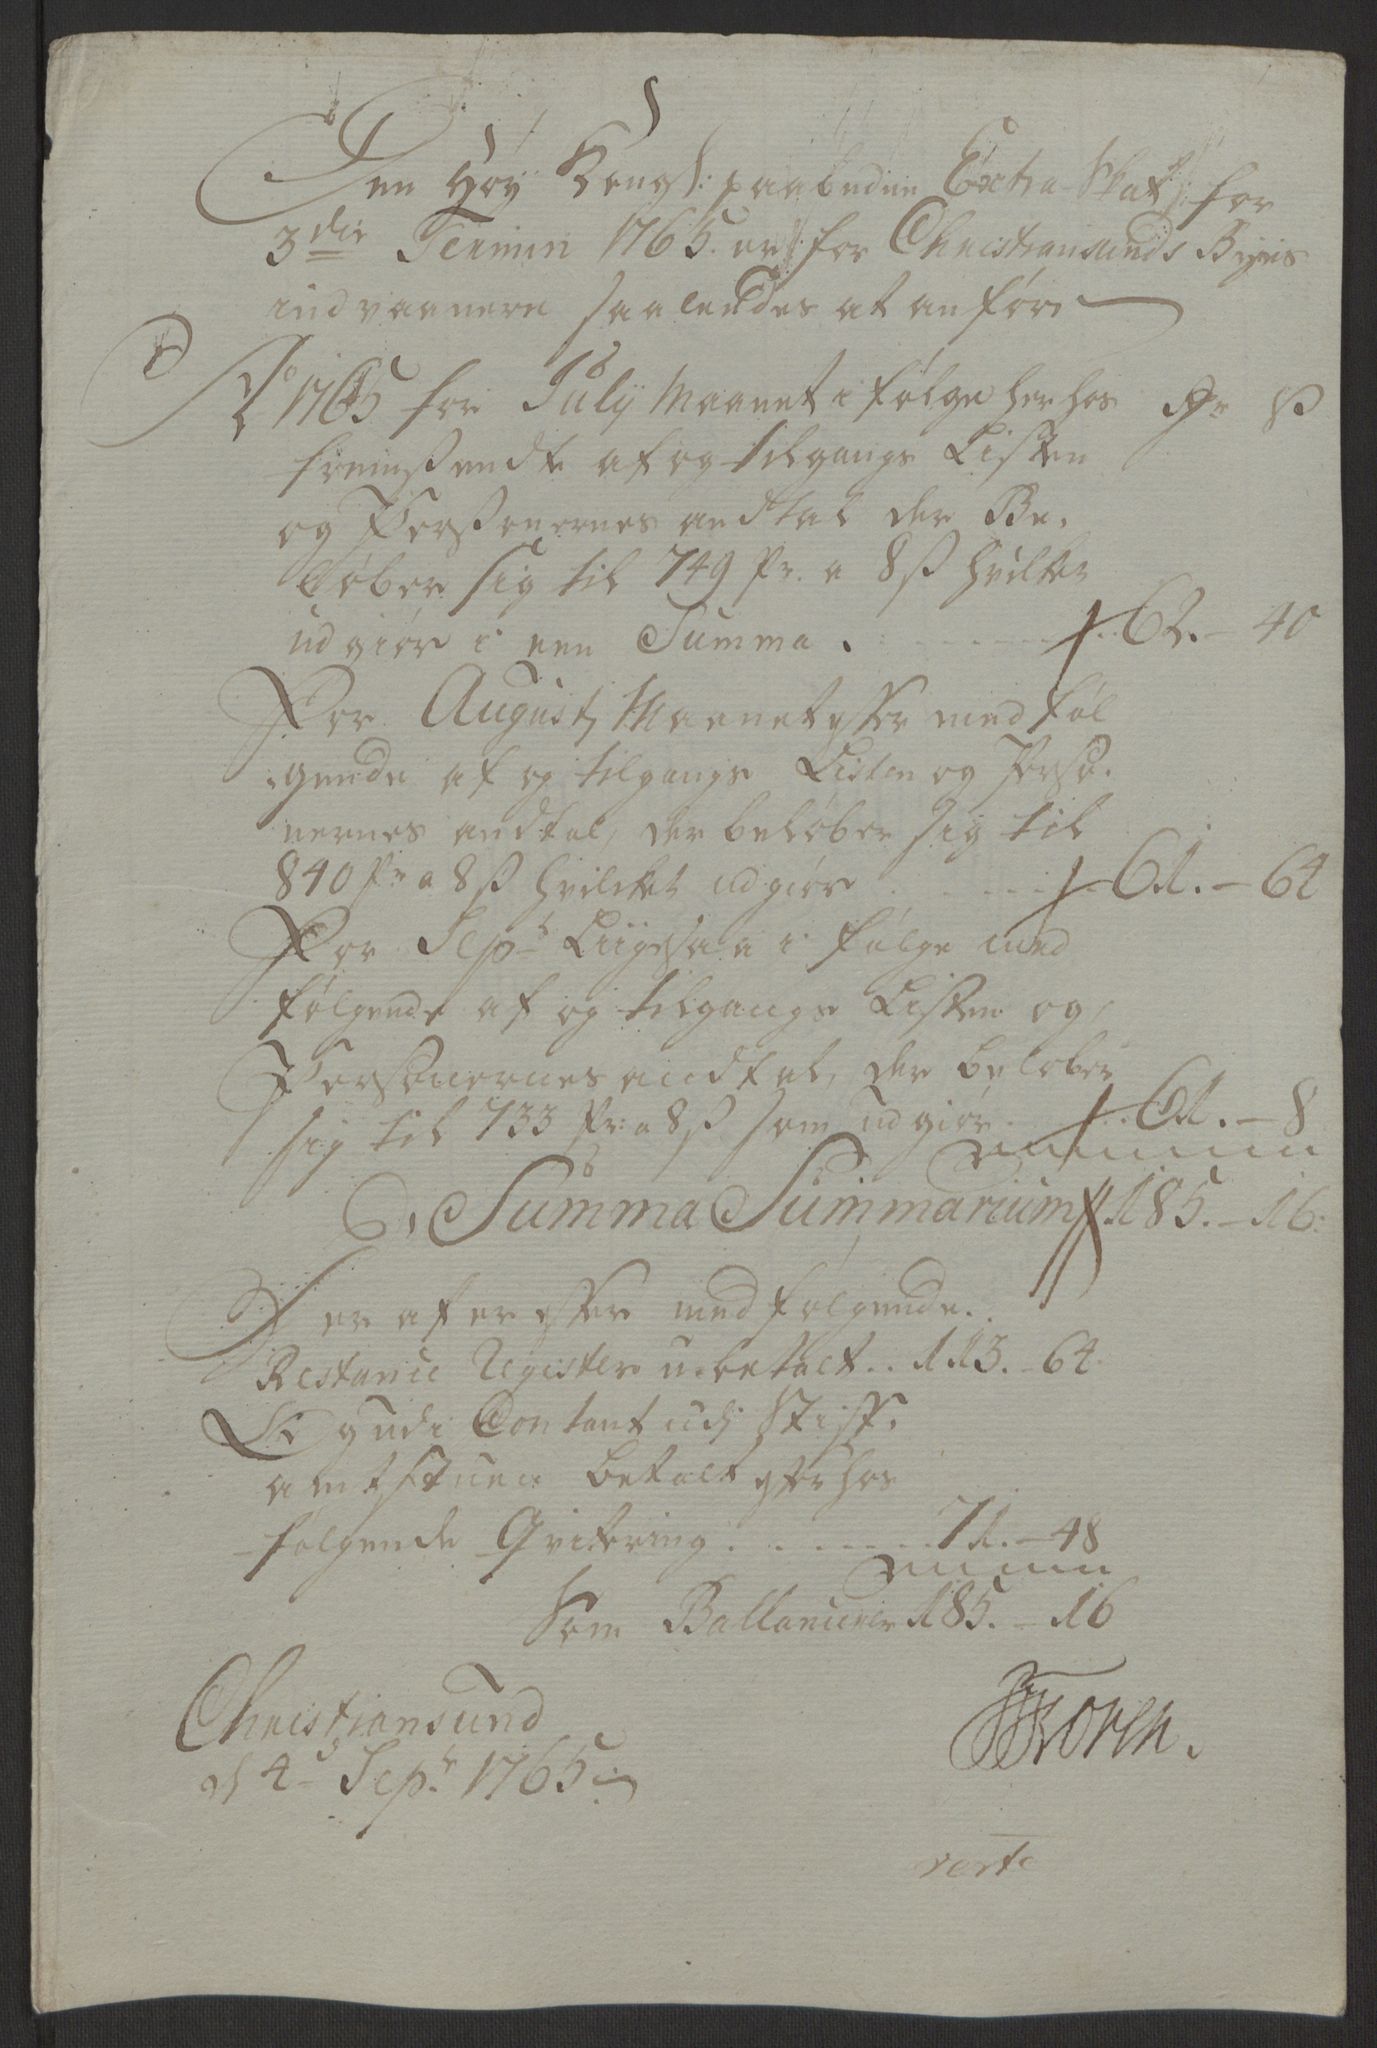 Den Høy Kongl: paabudne Extra Skatt for
3die Termin 1765. er for Christiansunds Byes
indvaanere saaledes at anføre
Ao 1765 for Julij Maanet i følge her hos Rdr ß
fremsendte af og tilgangs Listen
og Persohnernes andtal der Be,
løber sig til 749 Pr. a 8 ß hvilket
udgiør i een Summa . 62. - 40
For Augustj Maanet efter med føl
gende af og tilgangs Listen og Perso,
nernes andtal, der beløber sig til
840 Pr a 8 ß hvilcket udgiør 61. - 64
For Sepr Liigesaa i følge med
følgende af og tilgangs Listen og
Personernes andtal, der beløber
sig til 733 Pr: a 8 ß som udgiør 61. - 8
Summa Summarium 185. - 16.
Heraf er efter medfølgende.
Restance Register u-betalt .. 113. - 64
Og udi Contant udj Stift,
amtstuen betalt efter hos
følgende Qvitering 71. - 48
Som Ballancerer 185. - 16
Christiansund
d 4 Sepr 1765
Koren.
verte